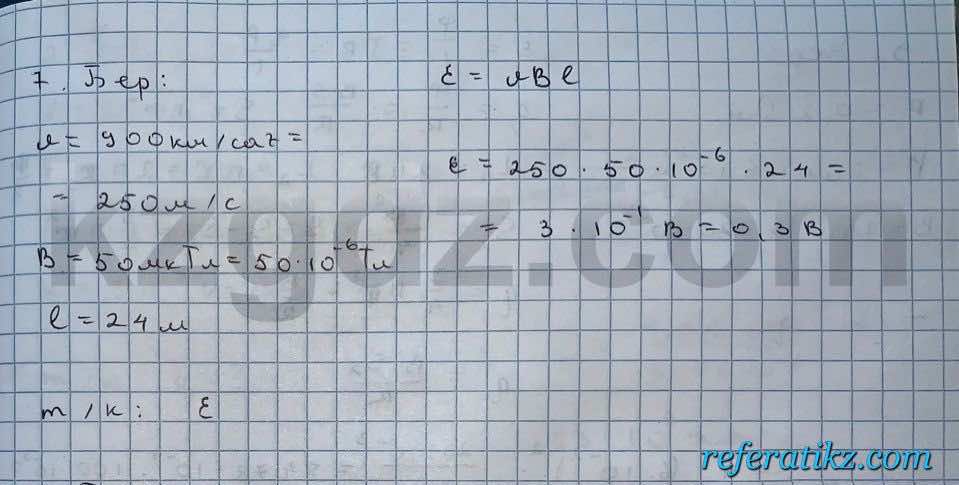 7. Бер:
v = 900 км/сағ =
= 250 м/с
B = 50 мкТл = 50·10⁻⁶ Тл
l = 24 м
т/к: Ɛ
Ɛ = vBl
Ɛ = 250 · 50 · 10⁻⁶ · 24 =
= 3 · 10⁻¹ В = 0,3 В
kzgdz.com
referatikz.com